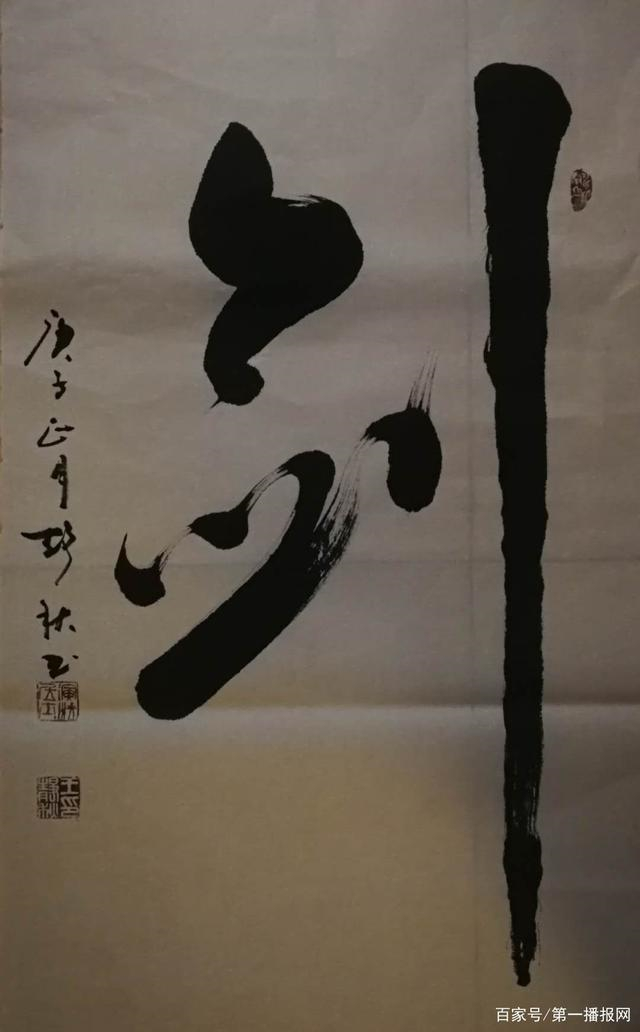 剑
庚子正月静秋书
百家号/第一播报网